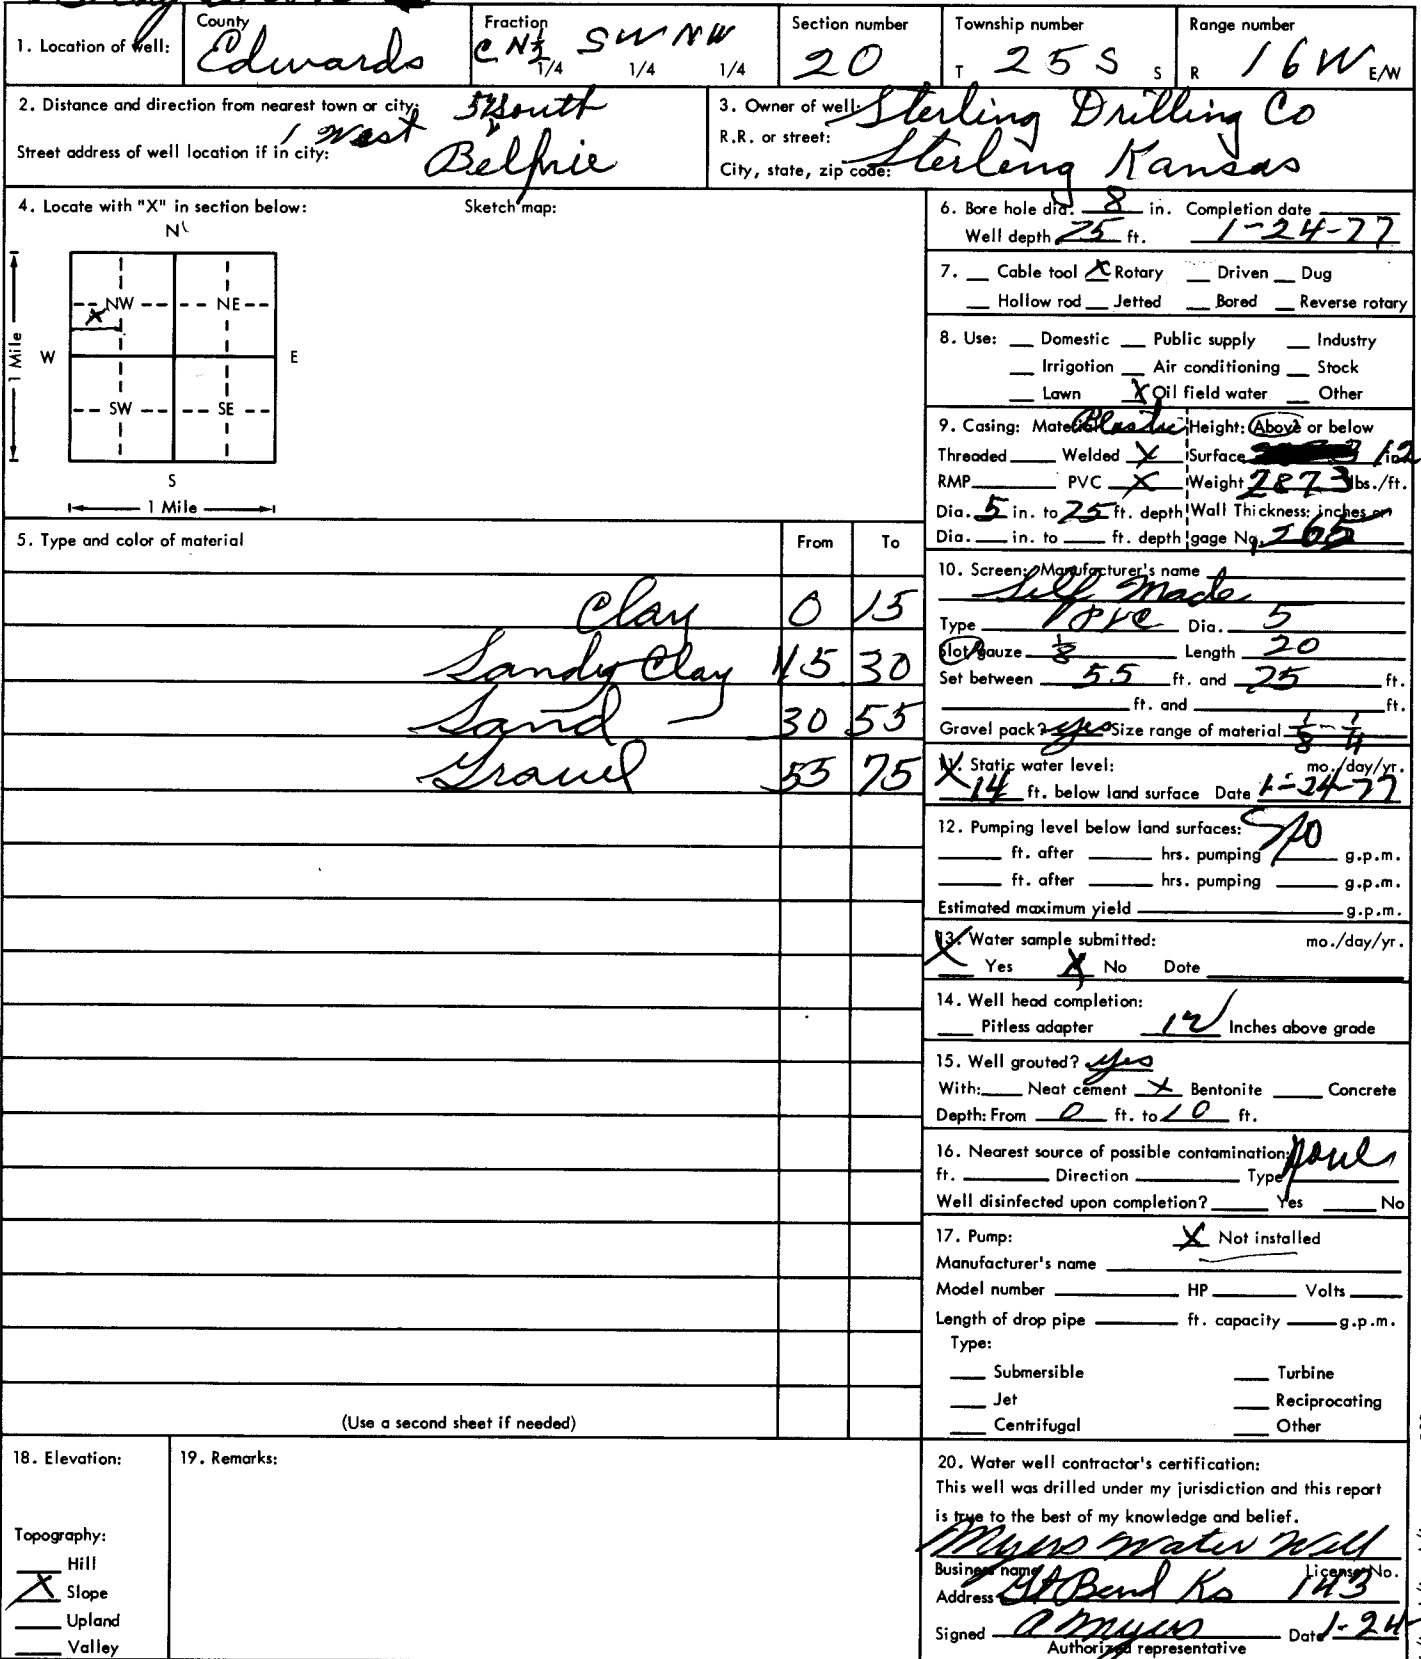 1. Location of well: County Edwards Fraction C N½ 1/4 SW 1/4 NW 1/4 Section number 20 Township number T 25 S S Range number R 16 W E/W
2. Distance and direction from nearest town or city: 1 West South
Street address of well location if in city: Belpre
3. Owner of well: Sterling Drilling Co
R.R. or street:
City, state, zip code: Sterling Kansas
4. Locate with "X" in section below: Sketch map:
N
NW NE
X
W E
1 Mile
SW SE
S
1 Mile
5. Type and color of material From To
Clay 0 15
Sandy Clay 15 30
Sand 30 55
Gravel 55 75
(Use a second sheet if needed)
6. Bore hole dia. 8 in. Completion date
Well depth 75 ft. 1-24-77
7. Cable tool X Rotary Driven Dug
Hollow rod Jetted Bored Reverse rotary
8. Use: Domestic Public supply Industry
Irrigation Air conditioning Stock
Lawn X Oil field water Other
9. Casing: Material Plastic Height: Above or below
Threaded Welded X Surface 12 in.
RMP PVC X Weight 2873 lbs./ft.
Dia. 5 in. to 75 ft. depth Wall Thickness: inches or
Dia. in. to ft. depth gage No. 265
10. Screen: Manufacturer's name
Self Made
Type PVC Dia. 5
Slot/gauze 1/8 Length 20
Set between 55 ft. and 75 ft.
ft. and ft.
Gravel pack? yes Size range of material 1/8 - 1/4
11. Static water level: mo./day/yr.
14 ft. below land surface Date 1-24-77
12. Pumping level below land surfaces:
ft. after hrs. pumping g.p.m.
ft. after hrs. pumping g.p.m.
Estimated maximum yield g.p.m.
13. Water sample submitted: mo./day/yr.
Yes X No Date
14. Well head completion:
Pitless adapter 12 Inches above grade
15. Well grouted? yes
With: Neat cement X Bentonite Concrete
Depth: From 0 ft. to 10 ft.
16. Nearest source of possible contamination:
ft. Direction Type None
Well disinfected upon completion? Yes No
17. Pump: X Not installed
Manufacturer's name
Model number HP Volts
Length of drop pipe ft. capacity g.p.m.
Type:
Submersible Turbine
Jet Reciprocating
Centrifugal Other
18. Elevation:
Topography:
Hill
X Slope
Upland
Valley
19. Remarks:
20. Water well contractor's certification:
This well was drilled under my jurisdiction and this report
is true to the best of my knowledge and belief.
Myers Water Well
Business name License No.
Address Gt Bend Ks 143
Signed A Myers Date 1-24
Authorized representative